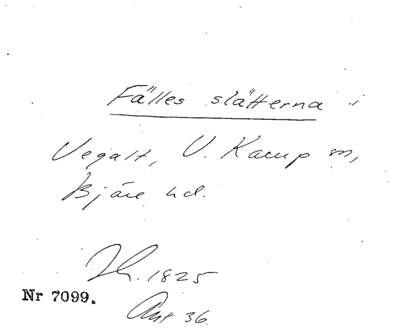 Fälles slätterna i
Vegalt, V. Karup sn,
Bjäre hd.
1825
Nr 7099.
36.